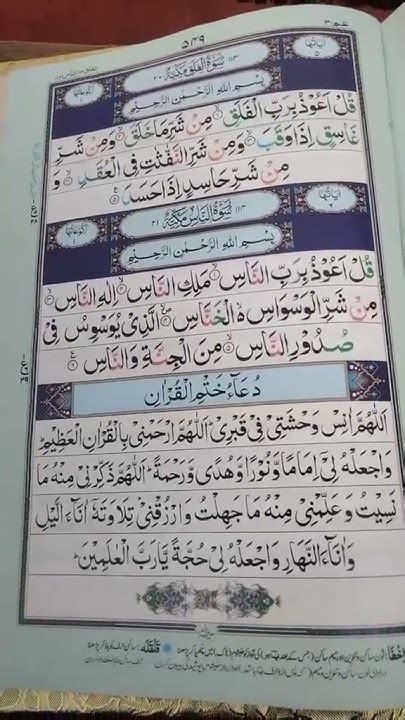 عم ۳۰
۵۴۹
اٰيَاتُهَا ۵
۱۱۳ سُوْرَةُ الْفَلَقِ مَكِّيَّةٌ ۲۰
رُكُوْعُهَا ۱
بِسْمِ اللّٰهِ الرَّحْمٰنِ الرَّحِيْمِ
قُلْ اَعُوْذُ بِرَبِّ الْفَلَقِ ۙ مِنْ شَرِّ مَا خَلَقَ ۙ وَمِنْ شَرِّ
غَاسِقٍ اِذَا وَقَبَ ۙ وَمِنْ شَرِّ النَّفّٰثٰتِ فِي الْعُقَدِ ۙ وَ
مِنْ شَرِّ حَاسِدٍ اِذَا حَسَدَ
اٰيَاتُهَا ۶
۱۱۴ سُوْرَةُ النَّاسِ مَكِّيَّةٌ ۲۱
رُكُوْعُهَا ۱
بِسْمِ اللّٰهِ الرَّحْمٰنِ الرَّحِيْمِ
قُلْ اَعُوْذُ بِرَبِّ النَّاسِ ۙ مَلِكِ النَّاسِ ۙ اِلٰهِ النَّاسِ ۙ
مِنْ شَرِّ الْوَسْوَاسِ ۙ الْخَنَّاسِ ۙ الَّذِيْ يُوَسْوِسُ فِيْ
صُدُوْرِ النَّاسِ ۙ مِنَ الْجِنَّةِ وَالنَّاسِ
دُعَاءُ خَتْمِ الْقُرْاٰنِ
اَللّٰهُمَّ اٰنِسْ وَحْشَتِيْ فِيْ قَبْرِيْ ؕ اَللّٰهُمَّ ارْحَمْنِيْ بِالْقُرْاٰنِ الْعَظِيْمِ ؕ
وَاجْعَلْهُ لِيْ اِمَامًا وَّنُوْرًا وَّهُدًى وَّرَحْمَةً ؕ اَللّٰهُمَّ ذَكِّرْنِيْ مِنْهُ مَا
نَسِيْتُ وَعَلِّمْنِيْ مِنْهُ مَا جَهِلْتُ وَارْزُقْنِيْ تِلَاوَتَهٗ اٰنَآءَ الَّيْلِ
وَاٰنَآءَ النَّهَارِ وَاجْعَلْهُ لِيْ حُجَّةً يَّارَبَّ الْعٰلَمِيْنَ ؕ